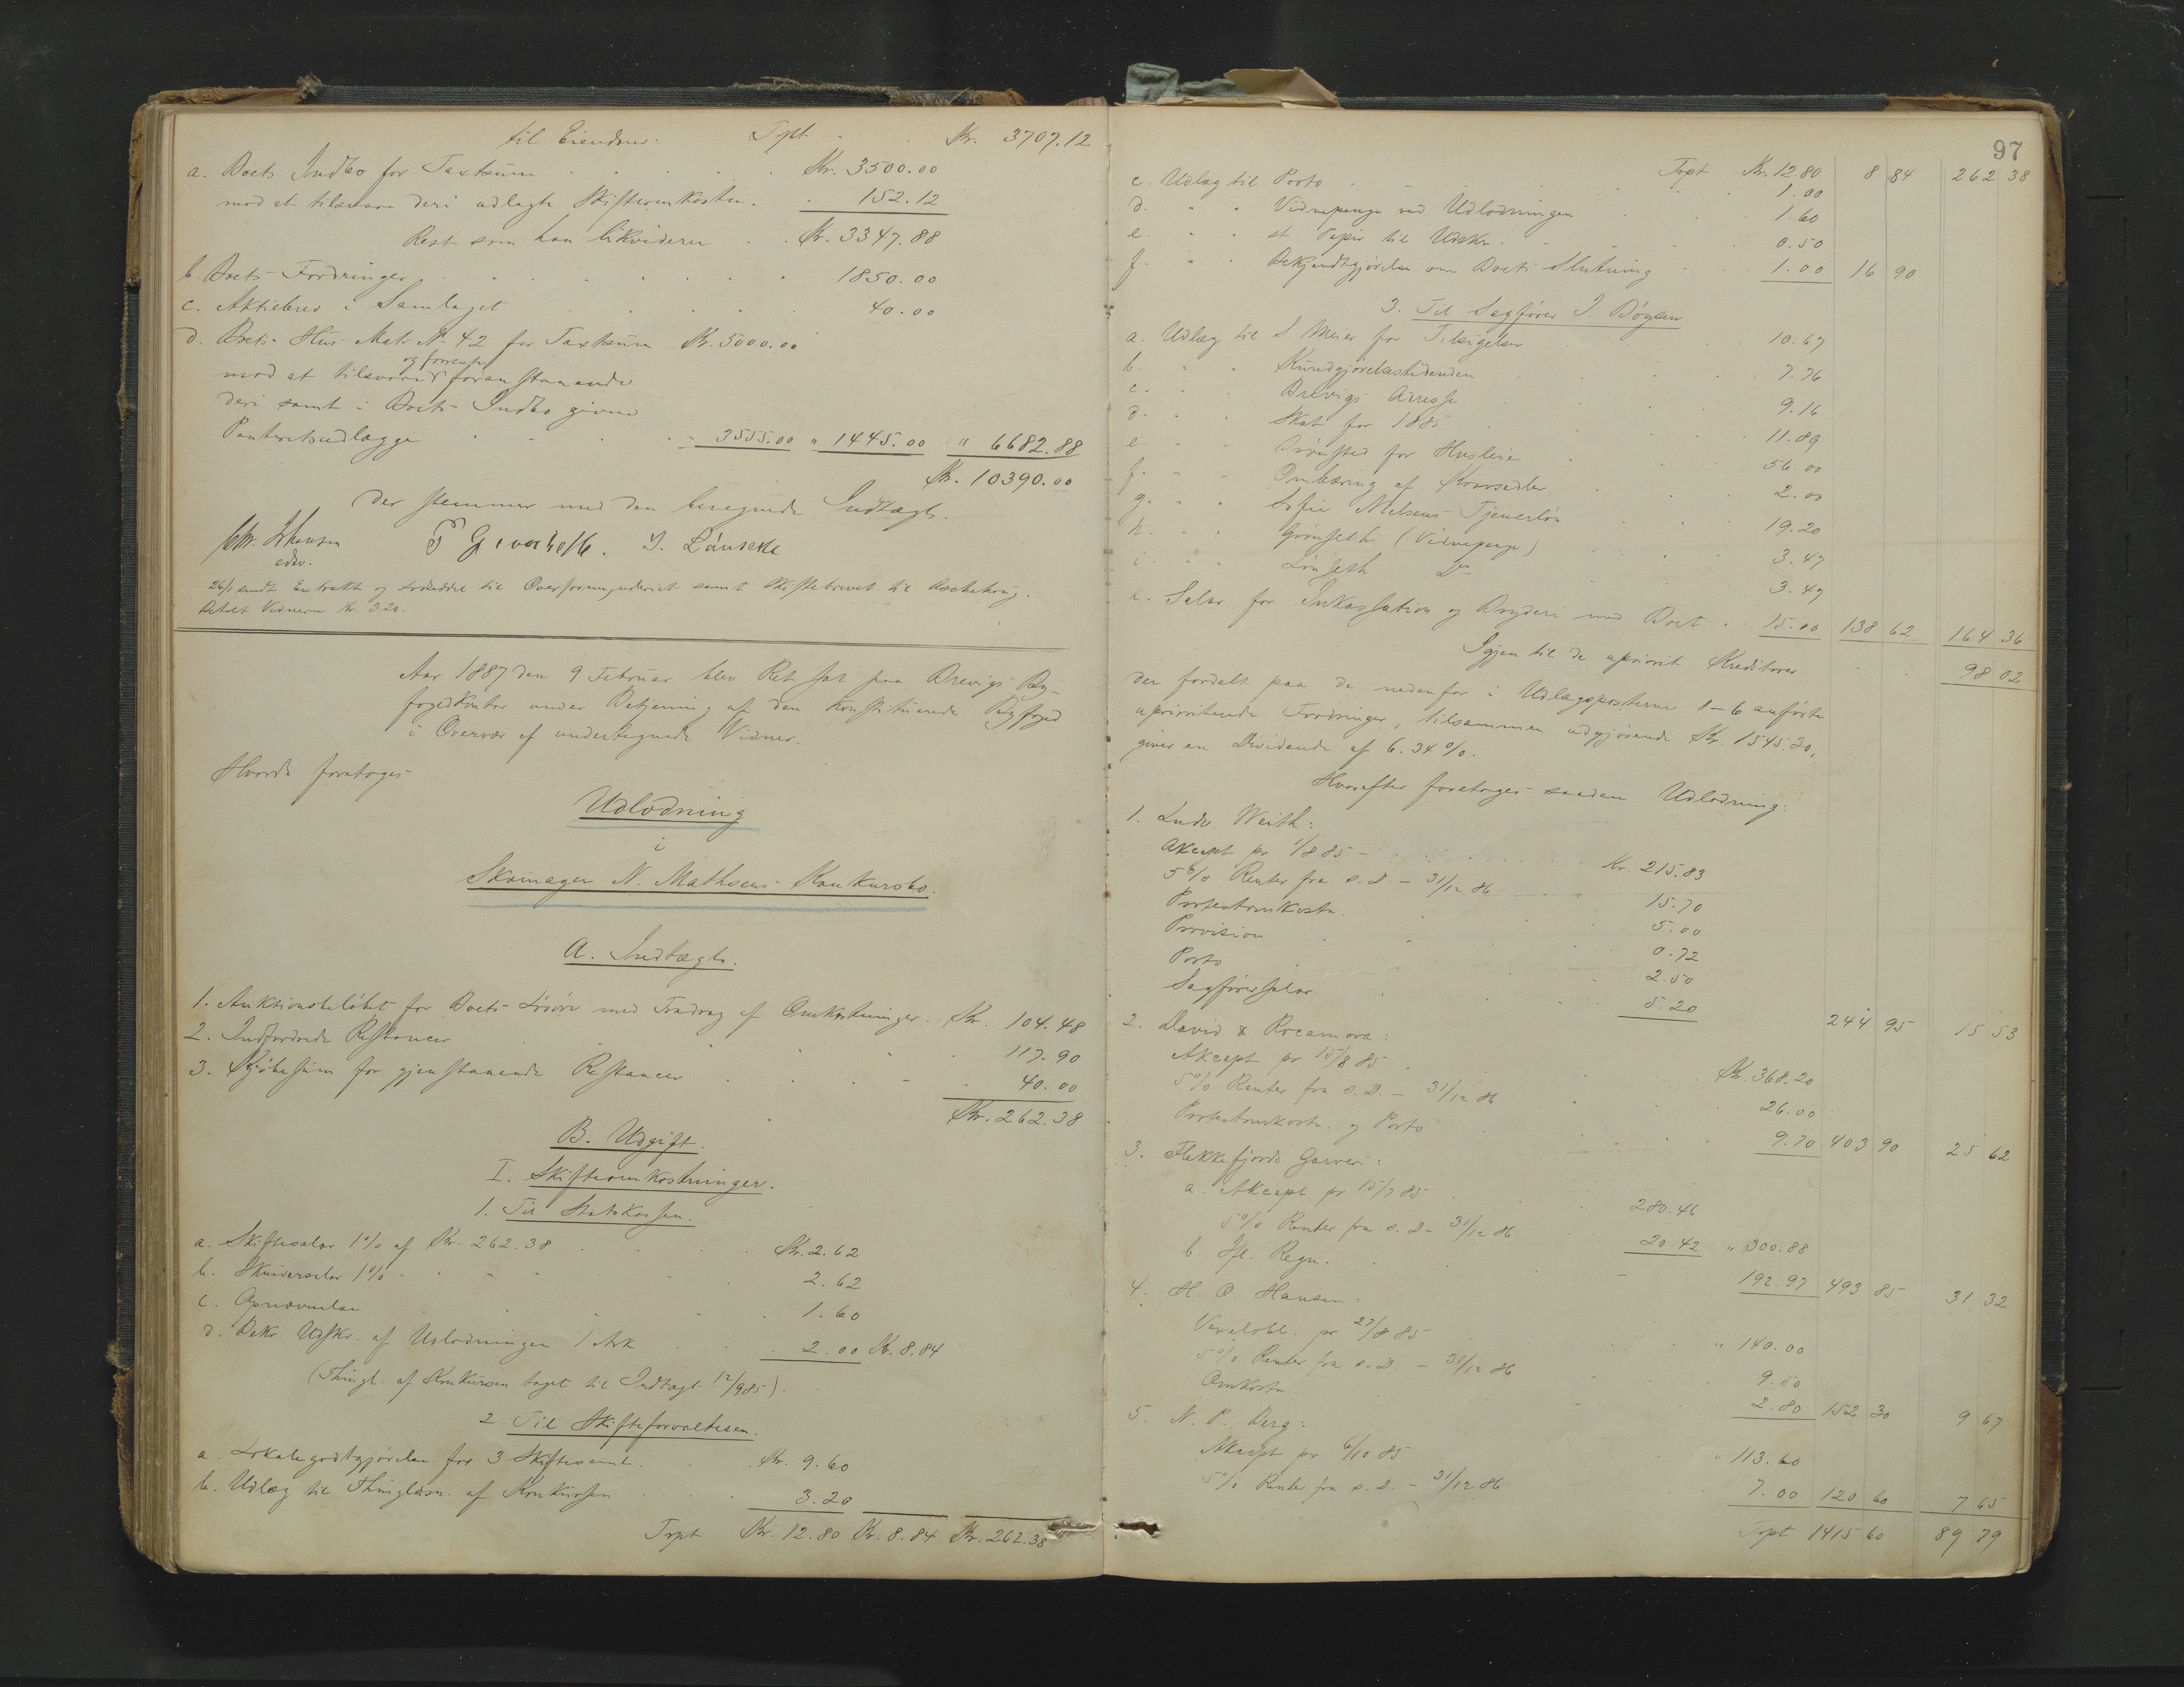 til Eiendom: Trpt Kr. 3707.12
a. Boets Indbo for Taxtsum Kr. 3500.00
mod at tilsvare deri udlagte Skifteomkostn. 152.12
Rest som han likviderer Kr. 3347.88
b. Boets Fordringer 1850.00
c. Aktiebrev i Samlaget 40.00
d. Boets Hus Mat. N. 42 for Taxtsum Kr. 5000.00
og forrente
mod at tilsvare foranstaaende
deri samt i Boets Indbo givne
Panteretsudlægge 3555.00 " 1445.00 " 6682.88
Kr. 10390.00
der stemmer med den beregnede Indtægt.
Chr. Johansen
edsv.
26/1 sendt Extrakt og Lodseddel til Overformynderiet samt Skiftebrevet til
Betalt Vidnerne Kr. 3.20.
Aar 1887 den 9 Februar blev Ret sat paa Brevigs By-
fogedkontor under Betjening af den konstituerede Byfoged
i Overvær af undertegnede Vidner.
Hvorda foretoges
Udlodning
i
Skomager N. Mathsens Konkursbo.
A. Indtægt.
1. Auktionsbeløbet for Boets Løsøre med Fradrag af Omkostninger Kr. 104.48
2. Indfordrede Restancer 117.90
3. Kjøbesum for gjenstaaende Restancer 40.00
Kr. 262.38
B. Udgift.
I. Skifteomkostninger.
1. Til Statskassen.
a. Skiftesalær 1% af Kr. 262.38 Kr. 2.62
b. Skriversalær 1% " " 2.62
c. 1.60
d. Bekr. Udskr. af Udlodningen 1 Ark 2.00 Kr. 8.84
(Thingl. af Konkursen taget til Indtægt 12/9 85).
2. Til Skifteforvalteren.
a. Lokalegodtgjørelse for 3 Skiftesaml. Kr. 9.60
b. Udlæg til Thinglæsn. af Konkursen 3.20
Trpt Kr. 12.80 Kr. 8.84 Kr. 262.38
97
Trpt Kr. 12.80 8 84 262 38
c. Udlæg til Porto 1.00
d. " " Vidnepenge ved Udlodningen 1.60
e. " " st. Papir til Udskr. 0.50
f. " " Bekjendtgjørelse om Boets Slutning 1.00 16 90
3. Til Sagfører J. Bøysen
a. Udlæg til S. Meier for Tilsigelser 10.67
b. " " Kundgjørelsestidenden 7.76
c. " " Brevigs Adresse 9.16
d. " " Skat for 1885 11.89
e. " " for Husleie 56.00
f. " " Ombæring af Kravsedler 2.00
g. " " Sofie Nielsens Tjenerløn 19.20
h. " " Grønseth (Vidnepenge) 3.47
i. " " Lønseth Do 3.47
k. Salær for Inkassation og Bryderi med Boet 15.00 138 62 164 36
Igjen til de uprivit. Kreditorer 98 02
der fordelt paa de nedenfor i Udlægsposterne 1-6 anførte
uprioriterede Fordringer, tilsammen udgjørende Kr. 1545.20,
giver en Dividende af 6.34%.
Hvorefter foretoges saadan Udlodning:
1. Ludv. Weith:
Akcept pr 1/8 85 Kr. 215.83
5% Renter fra s. D. - 31/12 86 15.70
Protestomkostn. 5.00
Provision 0.72
Porto 2.50
Sagførersalær 5.20 244 95 15 53
2. David & Rocamora:
Akcept pr 15/8 85 Kr. 368.20
5% Renter fra s. D. - 31/12 86 26.00
Protestomkostn. og Porto 9.70 403 90 25 62
3. Flekkefjords Garveri:
a. Akcept pr 15/7 85 280.46
5% Renter fra s. D - 31/12 86 20.42 " 300.88
b. Ifl. Regn. 192.97 493 85 31 32
4. H. O. Hansen:
Vexelobl. pr 27/8 85 " 140.00
5% Renter fra s. D. - 31/12 86 9.50
Omkostn. 2.80 152 30 9 67
5. N. P. Berg:
Akcept pr 6/10 85 " 113.60
5% Renter fra s. D. - 31/12 86 7.00 120 60 7 65
Trpt 1415 60 89 79